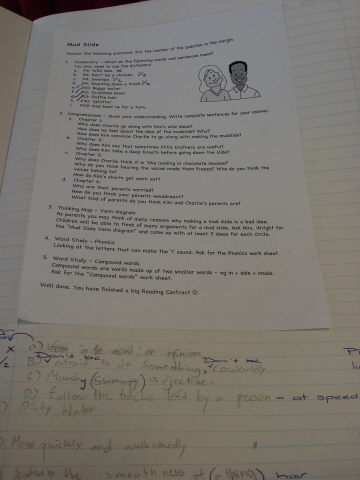 Mud Slide
Answer the following questions. Put the number of the question in the margin.
1. Vocabulary - What do the following words and sentences mean?
You may need to use the dictionary.
a. P6: Wild idea. x
b. P6: Don't be a chicken. 1/2
c. P8: Swampy. 1/2
d. Shooting down a track 1/2
Boggy water
Scramble down
Ruffle hair
Splutter
had been us for a turn.
2. Comprehension - Show your understanding. Write complete sentences for your answer.
a. Chapter 1
Why does Charlie go along with Kim's wild idea?
How does he feel about the idea of the mudslide? Why?
How does Kim convince Charlie to go along with making the mudslide?
b. Chapter 2
Why does Kim say that sometimes little brothers are useful?
Why does Kim take a deep breath before going down the slide?
c. Chapter 3
Why does Charlie think it is like landing in chocolate mousse?
Why do you think hearing the voices made them freeze? Who do you think the
voices belong to?
How do Kim's shorts get worn out?
d. Chapter 4
Why are their parents worried?
How do you think your parents would react?
What kind of parents do you think Kim and Charlie's parents are?
3. Thinking Map - Venn diagram
As parents you may think of many reasons why making a mud slide is a bad idea.
Children will be able to think of many arguments for a mud slide. Ask Mrs. Wright for
the "Mud Slide Venn diagram" and come up with at least 3 ideas for each circle.
4. Word Study - Phonics
Looking at the letters that can make the 'i' sound. Ask for the Phonics work sheet.
5. Word Study - Compound words.
Compound words are words made up of two smaller words - eg in + side = inside.
Ask for the "Compound words" work sheet.
Well done. You have finished a big Reading Contract ☺
x a) in the mind: or opinion
Don't be Don't be
1/2 B) afraid to do something, cowardly
C) Marshy (Swampy) adjective.
D) Follow the tracks left by a person - at speed
Dirty Water.
Move quickly and awkwardly
disturb the smoothness of (a thing) hair